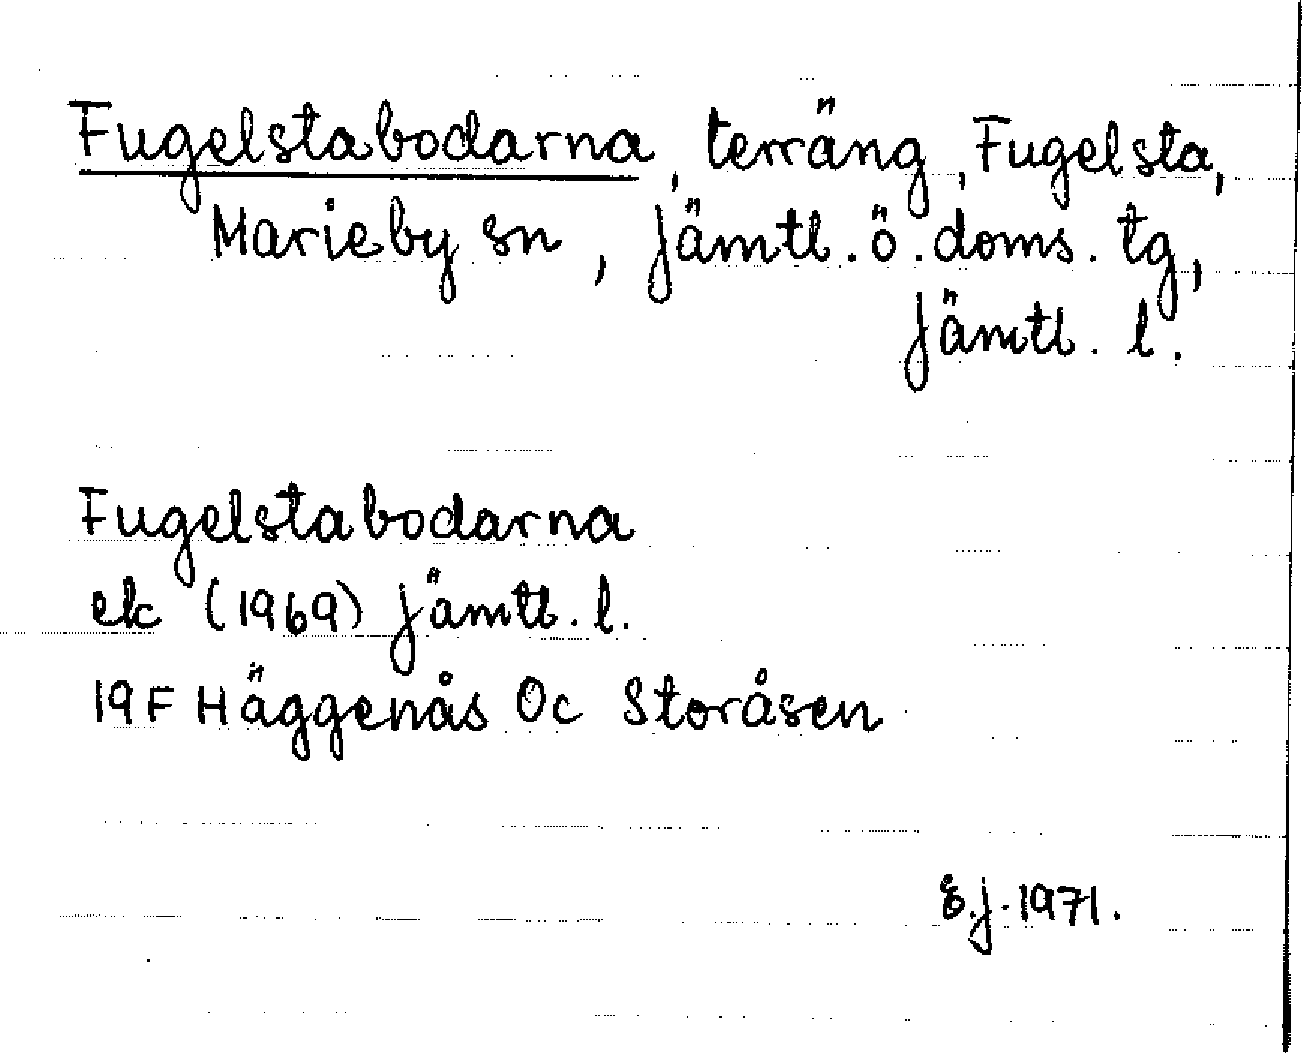 Fugelstabodarna, terräng, Fugelsta,
Marieby sn, Jämtl. ö. doms. tg,
Jämtl. l.
Fugelstabodarna
ek (1969) Jämtl. l.
19F Häggenås Oc Storåsen
E.J. 1971.